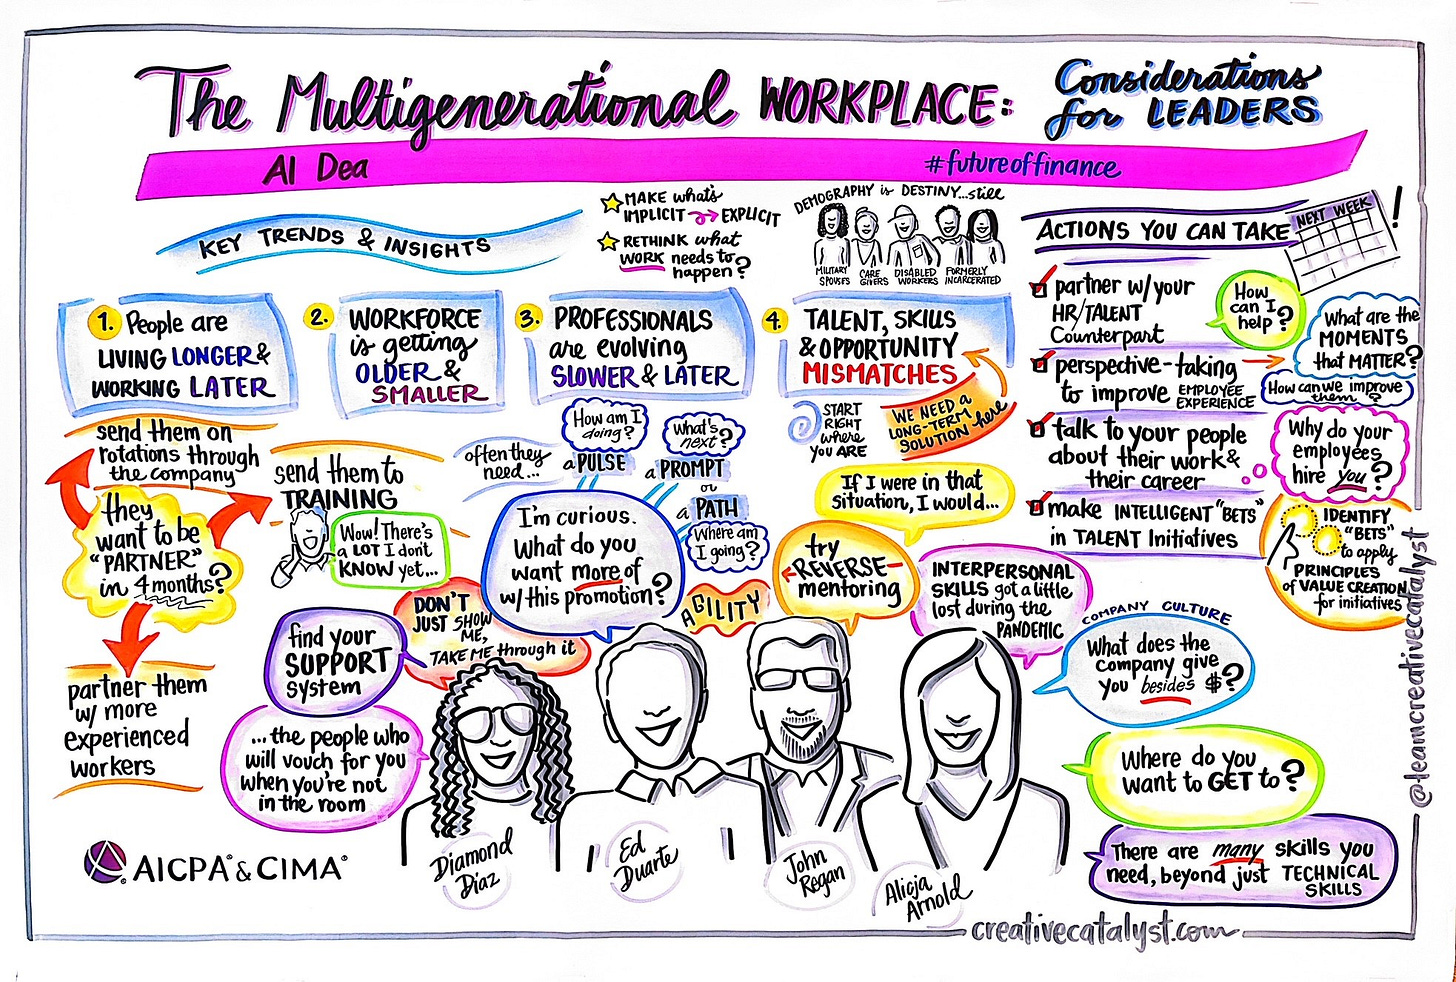 The Multigenerational WORKPLACE:
Considerations
for LEADERS
Al Dea
#futureoffinance
KEY TRENDS & INSIGHTS
MAKE what's
IMPLICIT EXPLICIT
RETHINK what
WORK needs to
happen?
DEMOGRAPHY is DESTINY...still
MILITARY
SPOUSES
CARE
GIVERS
DISABLED
WORKERS
FORMERLY
INCARCERATED
1. People are
LIVING LONGER &
WORKING LATER
2. WORKFORCE
is getting
OLDER &
SMALLER
3. PROFESSIONALS
are evolving
SLOWER & LATER
4. TALENT, SKILLS
& OPPORTUNITY
MISMATCHES
START
RIGHT
where
you ARE
WE NEED A
LONG-TERM
SOLUTION here
send them on
rotations through
the company
they
want to be
"PARTNER"
in 4 months?
send them to
TRAINING
Wow! There's
a LOT I don't
KNOW yet...
partner them
w/ more
experienced
workers
often they
need...
How am I
doing?
a PULSE
What's
next?
a PROMPT
or
a PATH
Where am
I going?
I'm curious.
What do you
want more of
w/ this promotion?
AGILITY
DON'T
JUST SHOW
ME,
TAKE ME through it
find your
SUPPORT
system
...the people who
will vouch for you
when you're not
in the room
If I were in that
situation, I would...
try
REVERSE-
mentoring
INTERPERSONAL
SKILLS got a little
lost during the
PANDEMIC
COMPANY CULTURE
What does the
company give
you besides $?
Where do you
want to GET to?
There are many SKILLS you
need, beyond just TECHNICAL
SKILLS
ACTIONS YOU CAN TAKE
NEXT WEEK!
partner w/ your
HR/TALENT
Counterpart
How
can I
help?
perspective-taking
to improve EMPLOYEE
EXPERIENCE
What are the
MOMENTS
that MATTER?
How can we improve
them?
talk to your people
about their work &
their career
Why do your
employees
hire you?
make INTELLIGENT "BETS"
in TALENT Initiatives
IDENTIFY
"BETS"
to apply
PRINCIPLES
of VALUE CREATION
for initiatives
Diamond
Díaz
Ed
Duarte
John
Regan
Alicja
Arnold
AICPA® & CIMA®
creativecatalyst.com
@teamcreativecatalyst